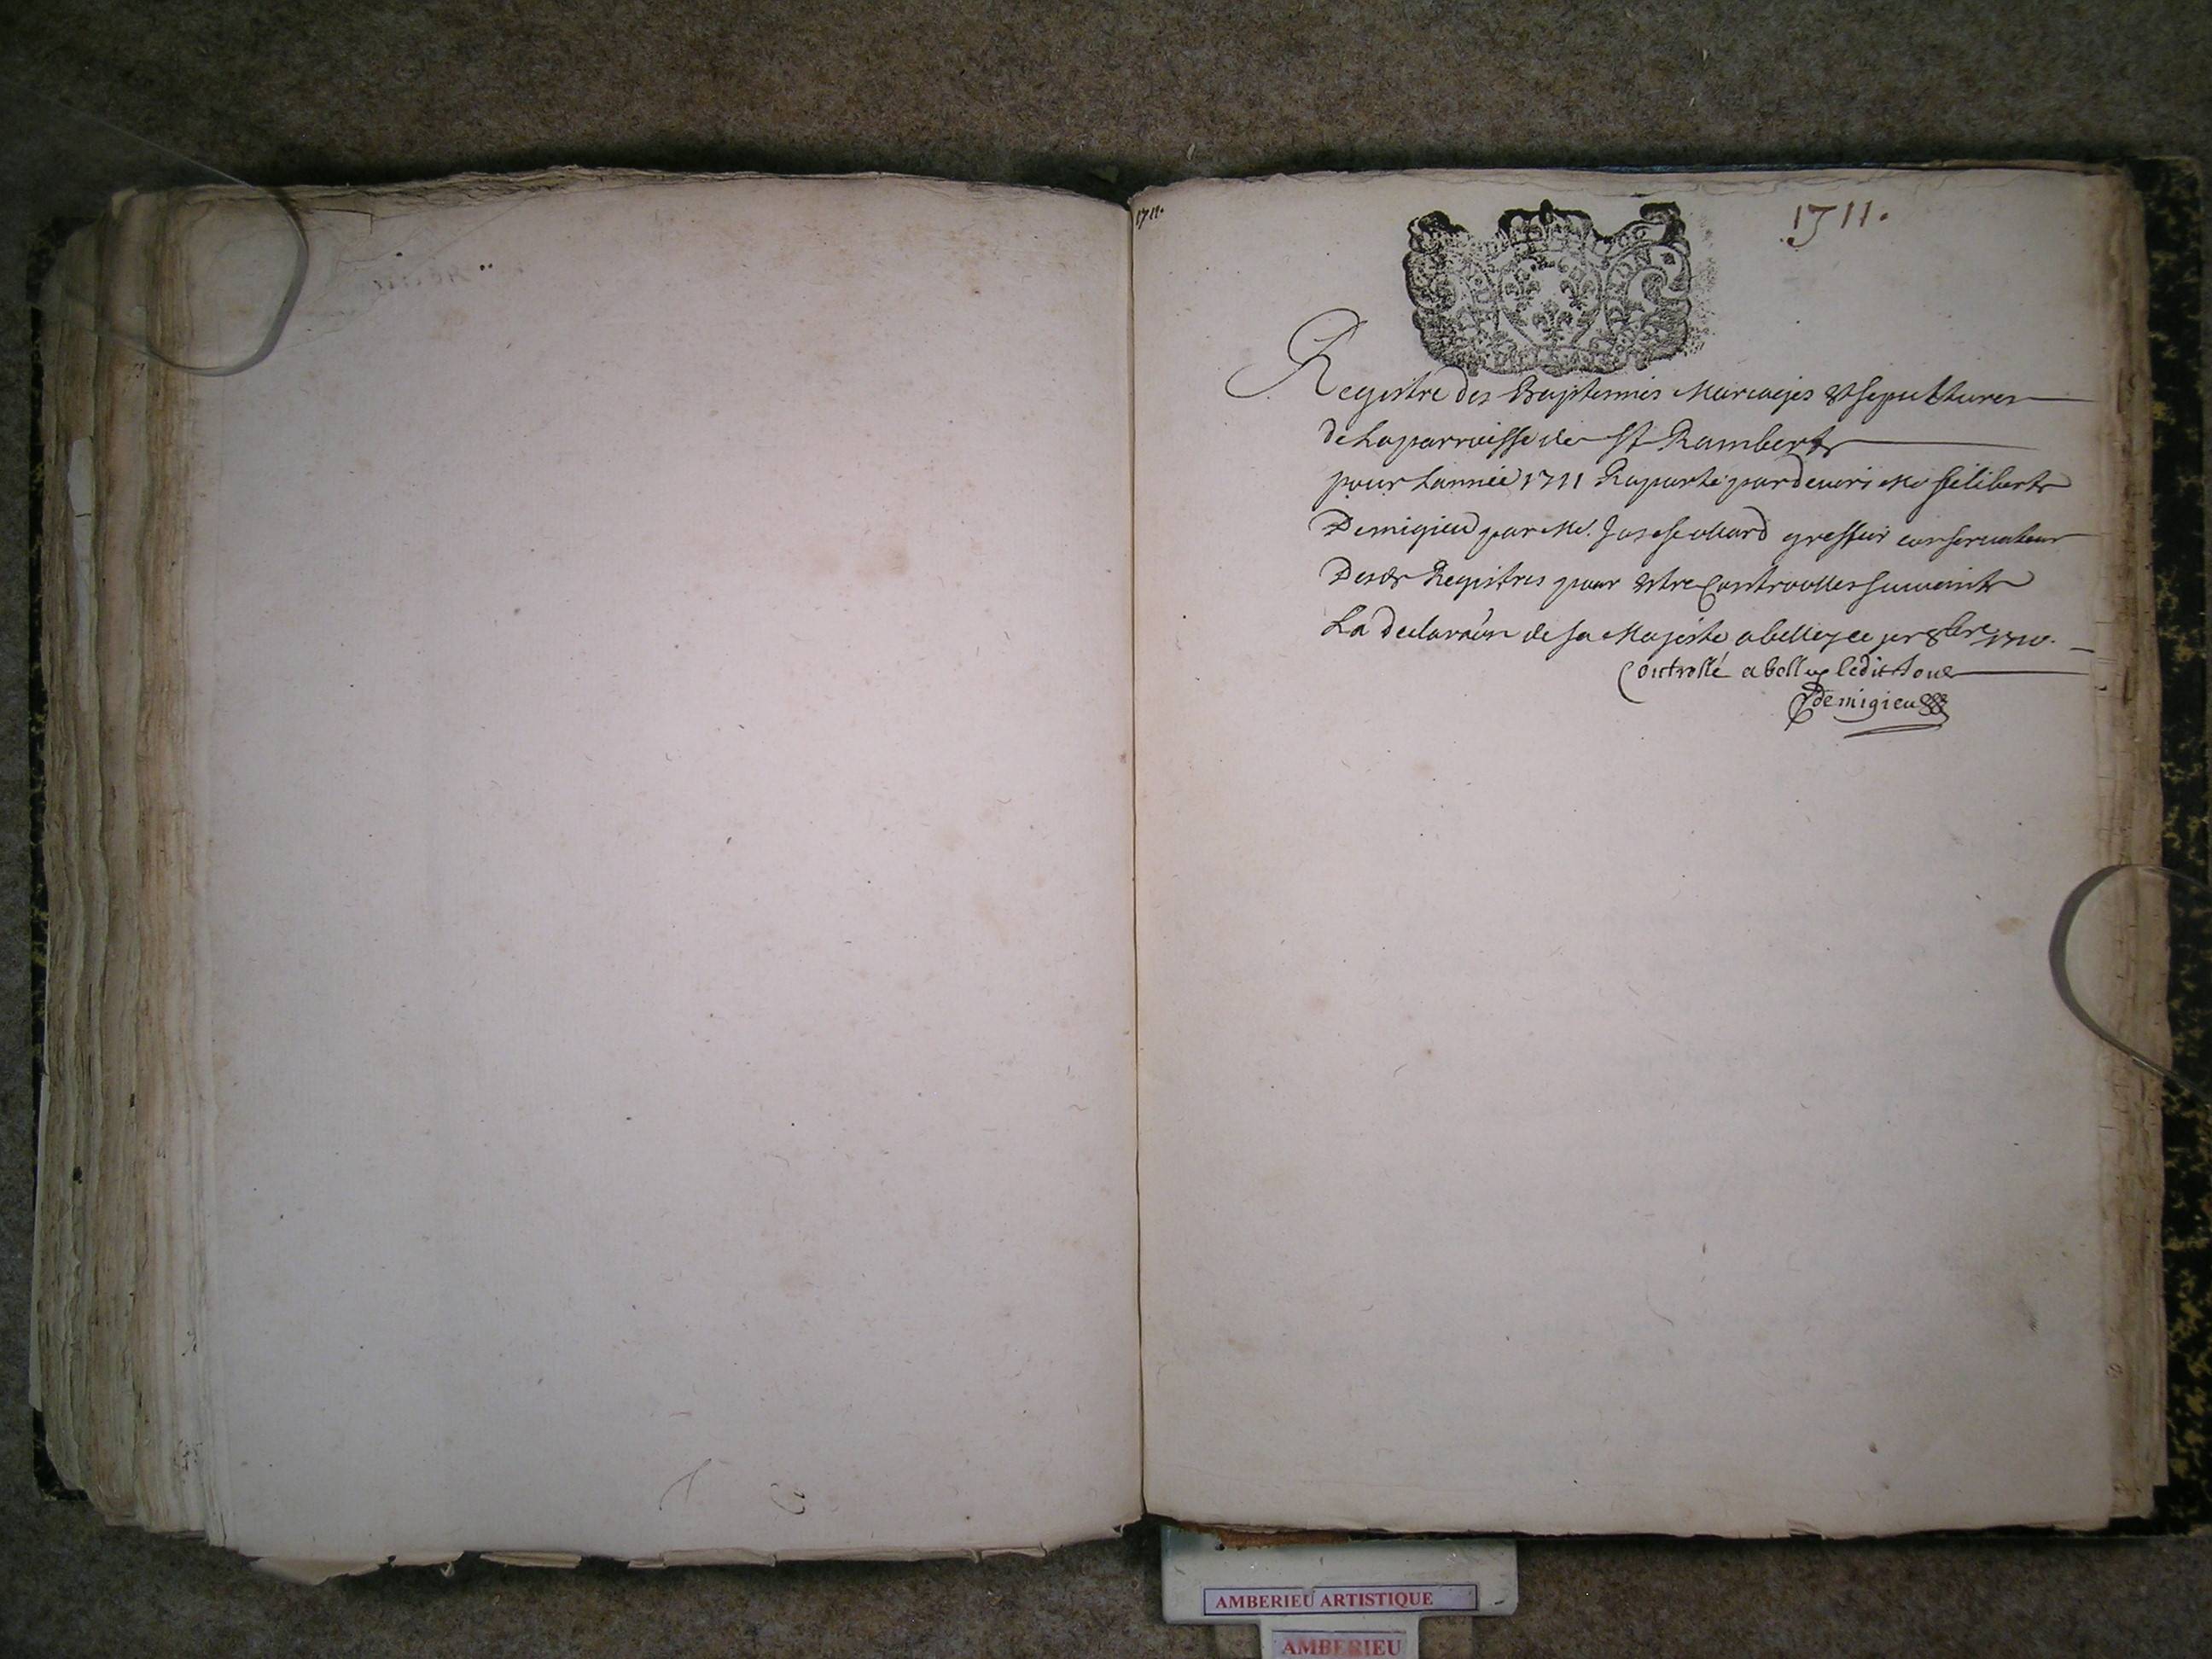 1711.
1711.
Registre des Baptesmes Mariages & sepultures
de La parroisse de St Rambert
pour Lannée 1711 Raporté pardevers Me filibert
Demigieu par Me. Josese greffier conservateur
Desds Registres pour estre Controolles suivants
La declaraôn de sa Majesté a belley ce per 8bre 1710.
Controllé a belley ledit Jour
Demigieu
AMBERIEU ARTISTIQUE
AMBERIEU